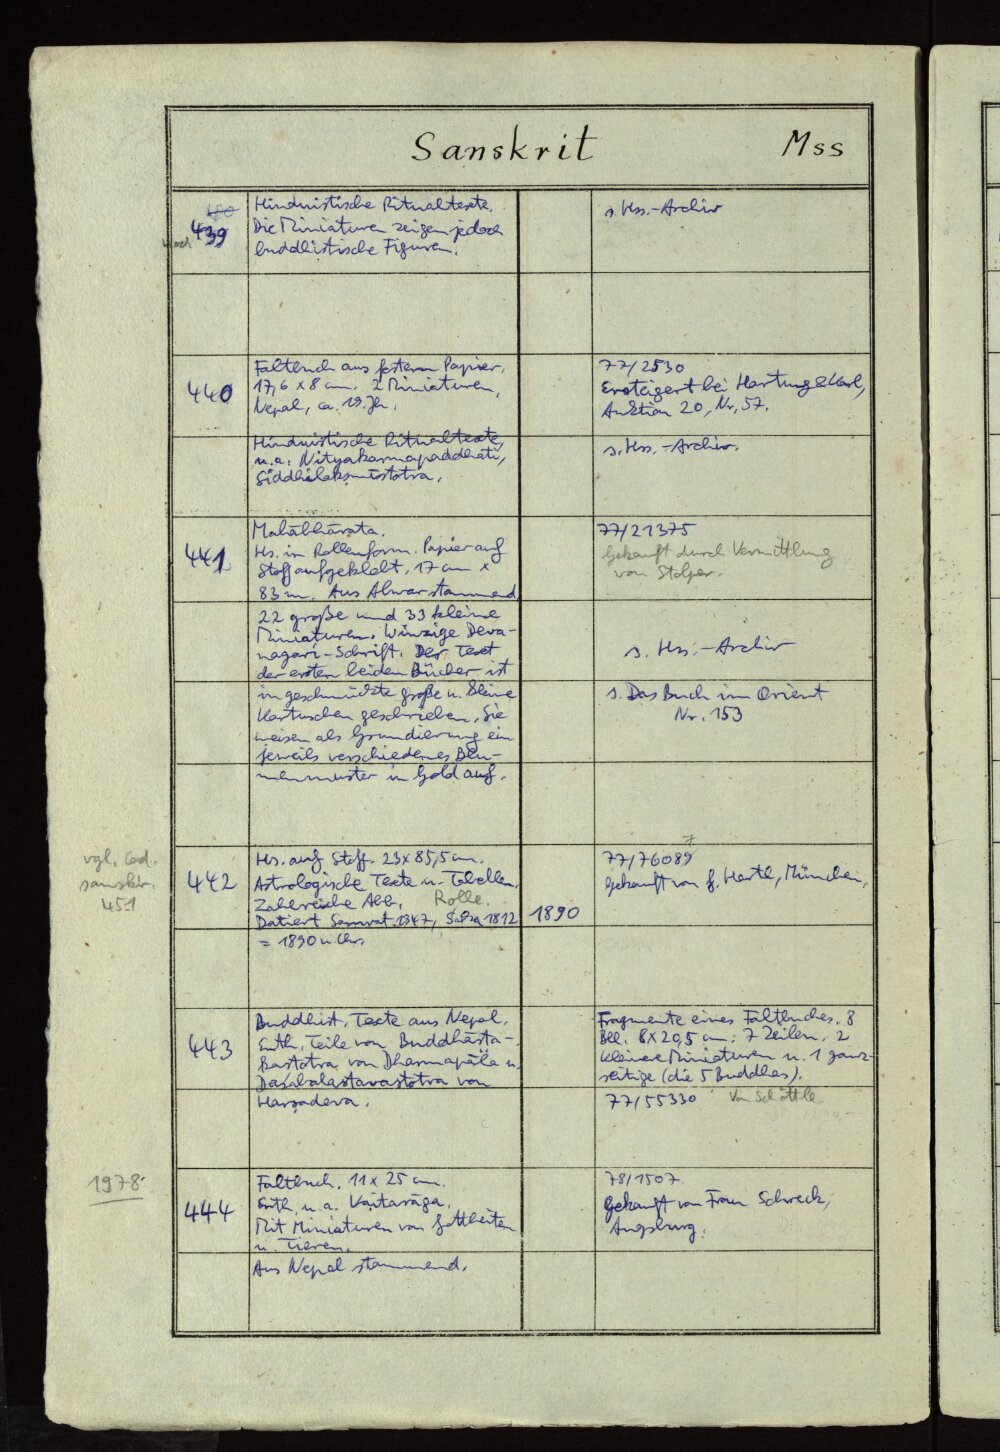 Sanskrit Mss
noch 439
Hinduistische Ritualtexte.
Die Miniaturen zeigen jedoch
buddhistische Figuren.
s. Hss.-Archiv
440
Faltbuch aus festem Papier.
17,6 x 8 cm. 2 Miniaturen,
Nepal, ca. 19. Jh.
Hinduistische Ritualtexte,
u.a. Nityakarmapaddhati,
Siddhilakṣmīstotra.
77/2530
Ersteigert bei Hartung & Karl,
Auktion 20, Nr. 57.
s. Hss.-Archiv.
441
Mahābhārata.
Hs. in Rollenform. Papier auf
Stoff aufgeklebt, 17 cm x
83 m. Aus Alwar stammend
22 große und 33 kleine
Miniaturen. Winzige Deva-
nagari-Schrift. Der Text
der ersten beiden Bücher ist
in geschmückte große u. kleine
Kartuschen geschrieben. Sie
weisen als Grundierung ein
jeweils verschiedenes Blu-
menmuster in Gold auf.
77/21375
Gekauft durch Vermittlung
von Stolper.
s. Hss.-Archiv
s. Das Buch im Orient
Nr. 153
vgl. Cod.
sanskr.
451
442
Hs. auf Stoff. 23 x 85,5 cm.
Astrologische Texte u. Tabellen,
Zahlreiche Abb. Rolle.
Datiert Samvat 1347, Śāka 1812
= 1890 n. Chr.
1890
77/76089
7
Gekauft von G. Hertl, München.
443
Buddhist. Texte aus Nepal.
Enth. Teile von Buddhāṣṭa-
kastotra von Dharmapāla u.
Daśabalastavastotra von
Harṣadeva.
Fragmente eines Faltbuches. 8
Bll. 8 x 20,5 cm. 7 Zeilen, 2
kleine Miniaturen u. 1 ganz-
seitige (die 5 Buddhas).
77/55330 Von Schöttle
1978
444
Faltbuch. 11 x 25 cm.
Enth. u.a. Vaitarāga.
Mit Miniaturen von Gottheiten
u. Tieren.
Aus Nepal stammend.
78/1507
Gekauft von Frau Schreck,
Augsburg.